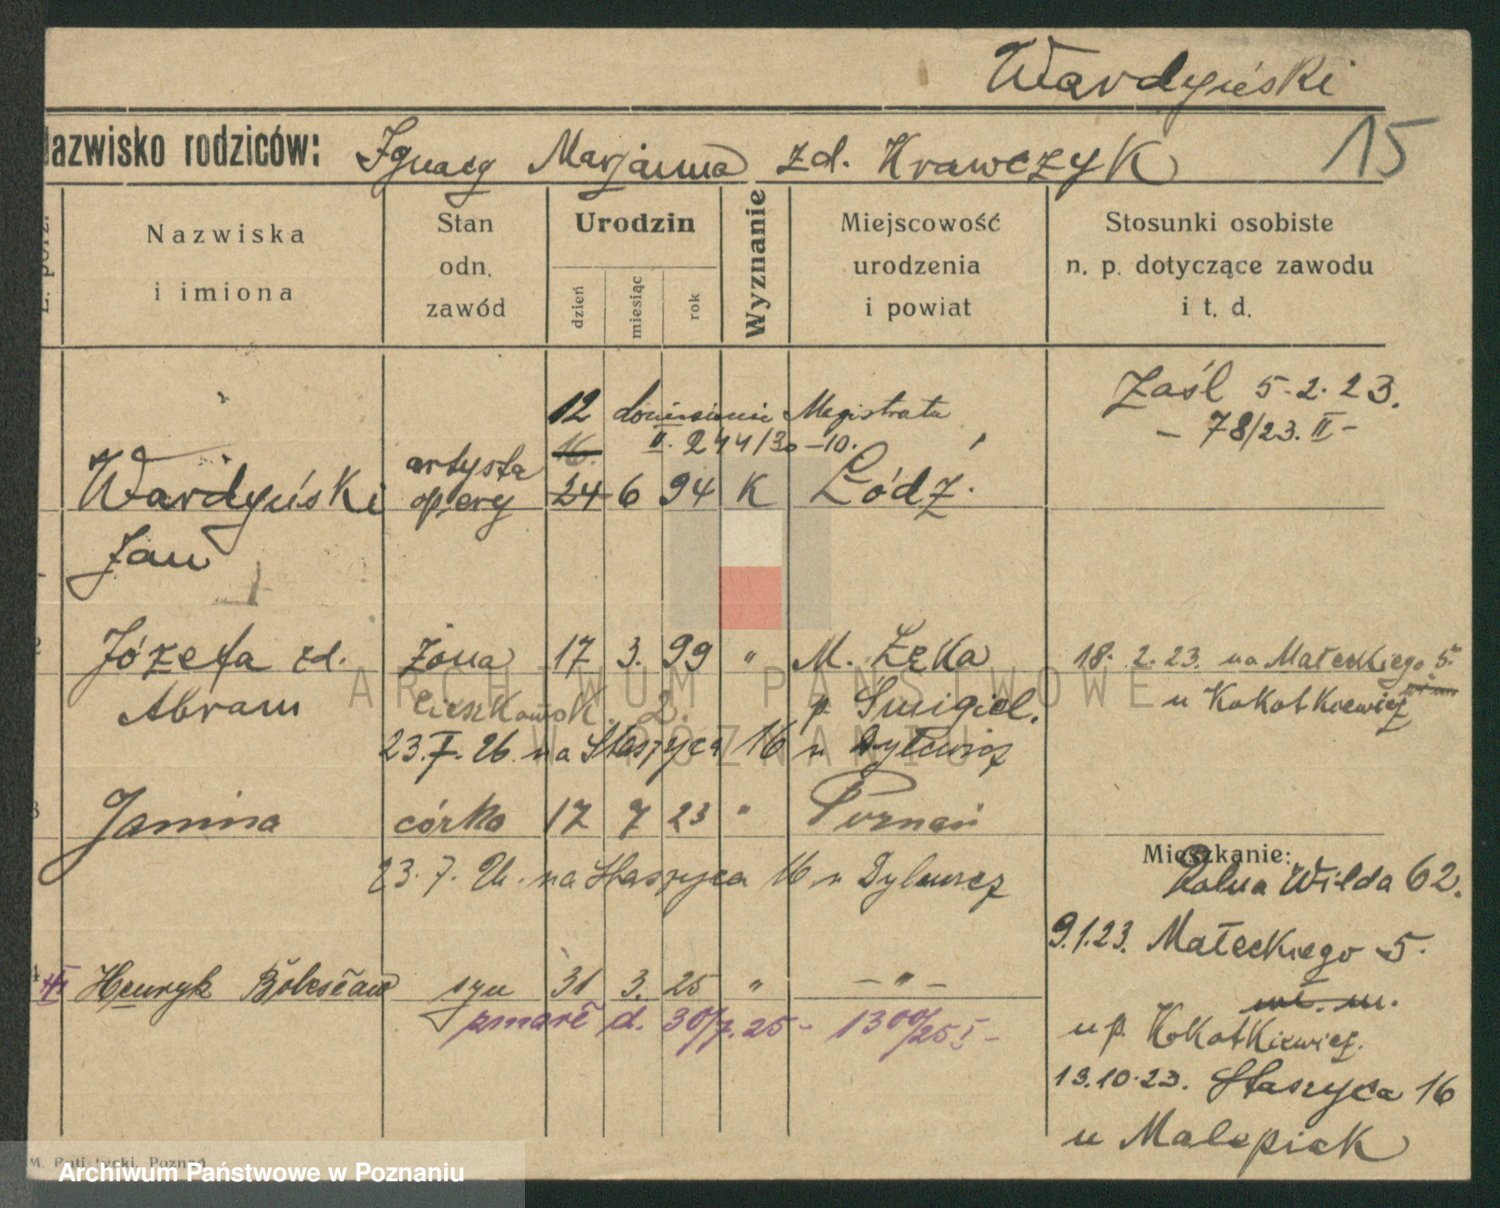 Wardyński
Nazwisko rodziców: Ignacy Marjanna zd. Krawczyk 15
L. porz.
Nazwiska
i imiona
Stan
odn.
zawód
Urodzin
dzień
miesiąc
rok
Wyznanie
Miejscowość
urodzenia
i powiat
Stosunki osobiste
n. p. dotyczące zawodu
i t. d.
Zaśl 5-2-23.
- 78/23. II -
12 doniesienie Magistratu
16. II. 244/30-10.
Wardyński artysta opery 24 6 94 K Łódź.
Jan
Józefa zd. żona 17 3. 99 " M. Łęka 18. 2. 23. na Małeckiego 5.
Abram Cieszkowsk. 2. p. Śmigiel. u Kokotkiewicz
23.7.26. na Staszyca 16 u Dylewicz
3 Janina córka 17 7 23 " Poznań
23.7.26. na Staszyca 16 u Dylewicz
Mieszkanie:
Polna Wilda 62.
9.1.23. Małeckiego 5.
4 Henryk Bolesław syn 31 3. 25 " - " -
zmarł d. 30/7.25 - 1300/25 I -
u p. Kokotkiewicz.
13.10.23. Staszyca 16
u Malepiak
ARCHIWUM PAŃSTWOWE
W POZNANIU
Archiwum Państwowe w Poznaniu